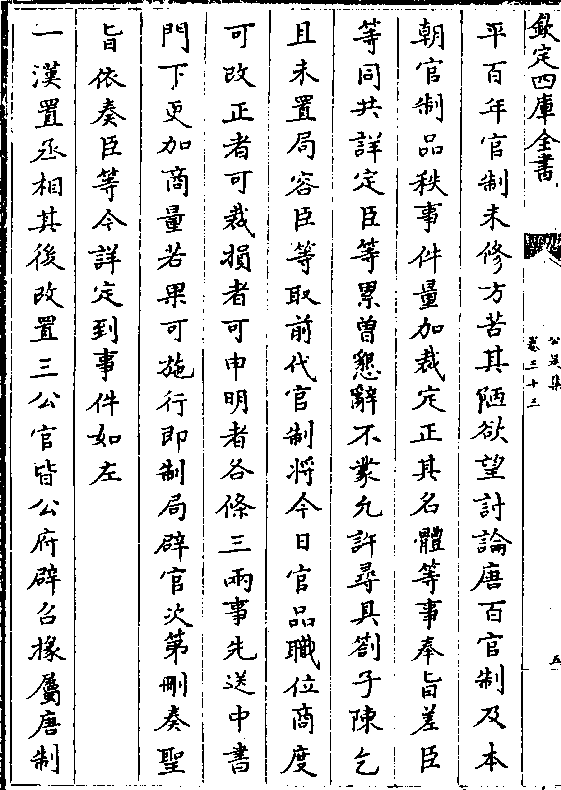 欽定四庫全書
公是集
卷三十三
五
平百年官制未修方苦其陋欲望討論唐百官制及本
朝官制品秩事件量加裁定正其名體等事奉旨差臣
等同共詳定臣等累曽懇辭不蒙允許尋具劄子陳乞
且未置局容臣等取前代官制將今日官品職位商度
可改正者可裁損者可申明者各條三兩事先送中書
門下更加商量若果可施行即制局辟官次第刪奏聖
旨依奏臣等今詳定到事件如左
一漢置丞相其後改置三公官皆公府辟召掾屬唐制